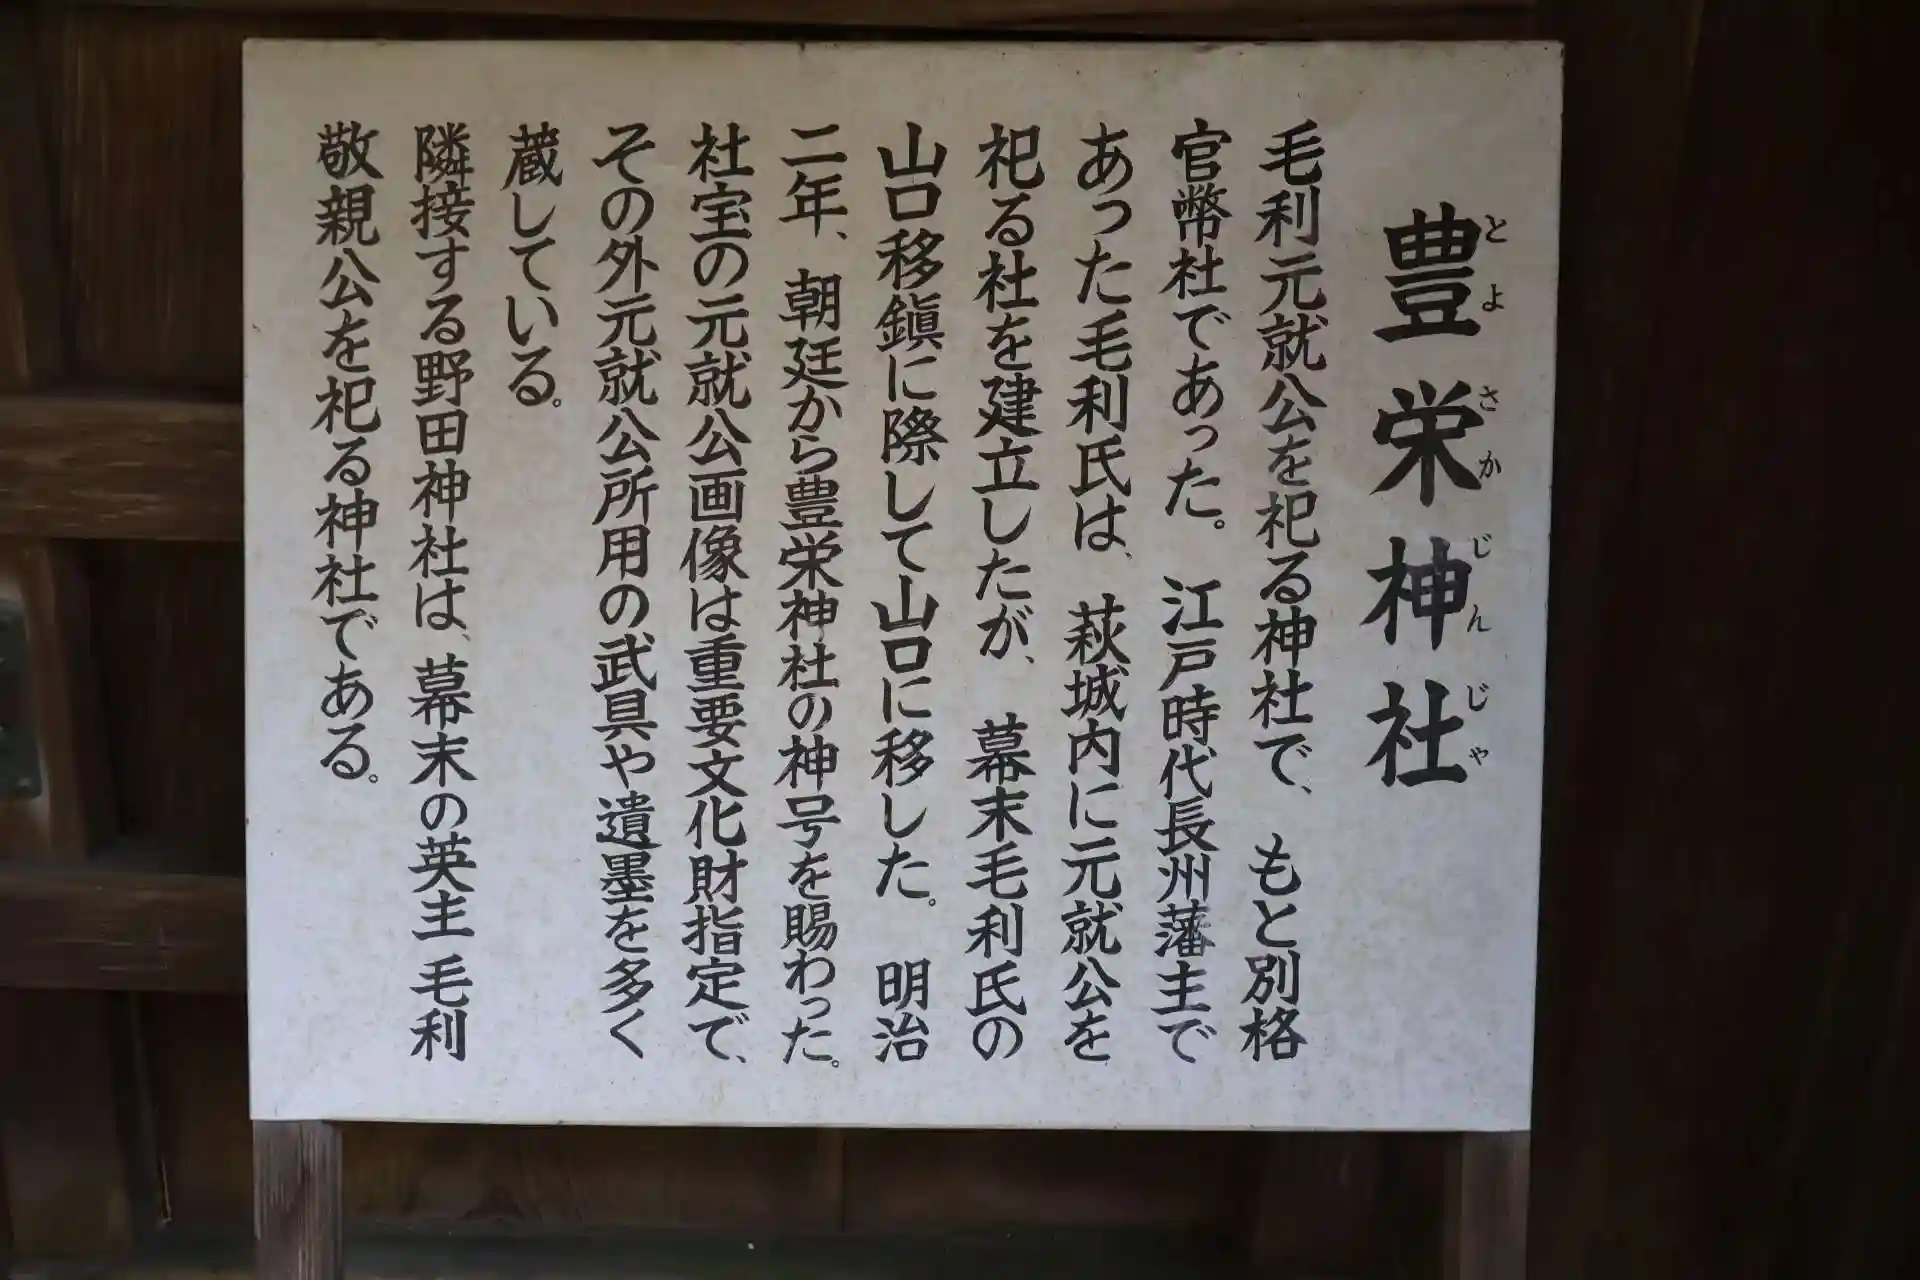 豊栄神社
とよさかじんじゃ
毛利元就公を祀る神社で、もと別格
官幣社であった。江戸時代長州藩主で
あった毛利氏は、萩城内に元就公を
祀る社を建立したが、幕末毛利氏の
山口移鎭に際して山口に移した。明治
二年、朝廷から豊栄神社の神号を賜わった。
社宝の元就公画像は重要文化財指定で、
その外元就公所用の武具や遺墨を多く
蔵している。
隣接する野田神社は、幕末の英主毛利
敬親公を祀る神社である。